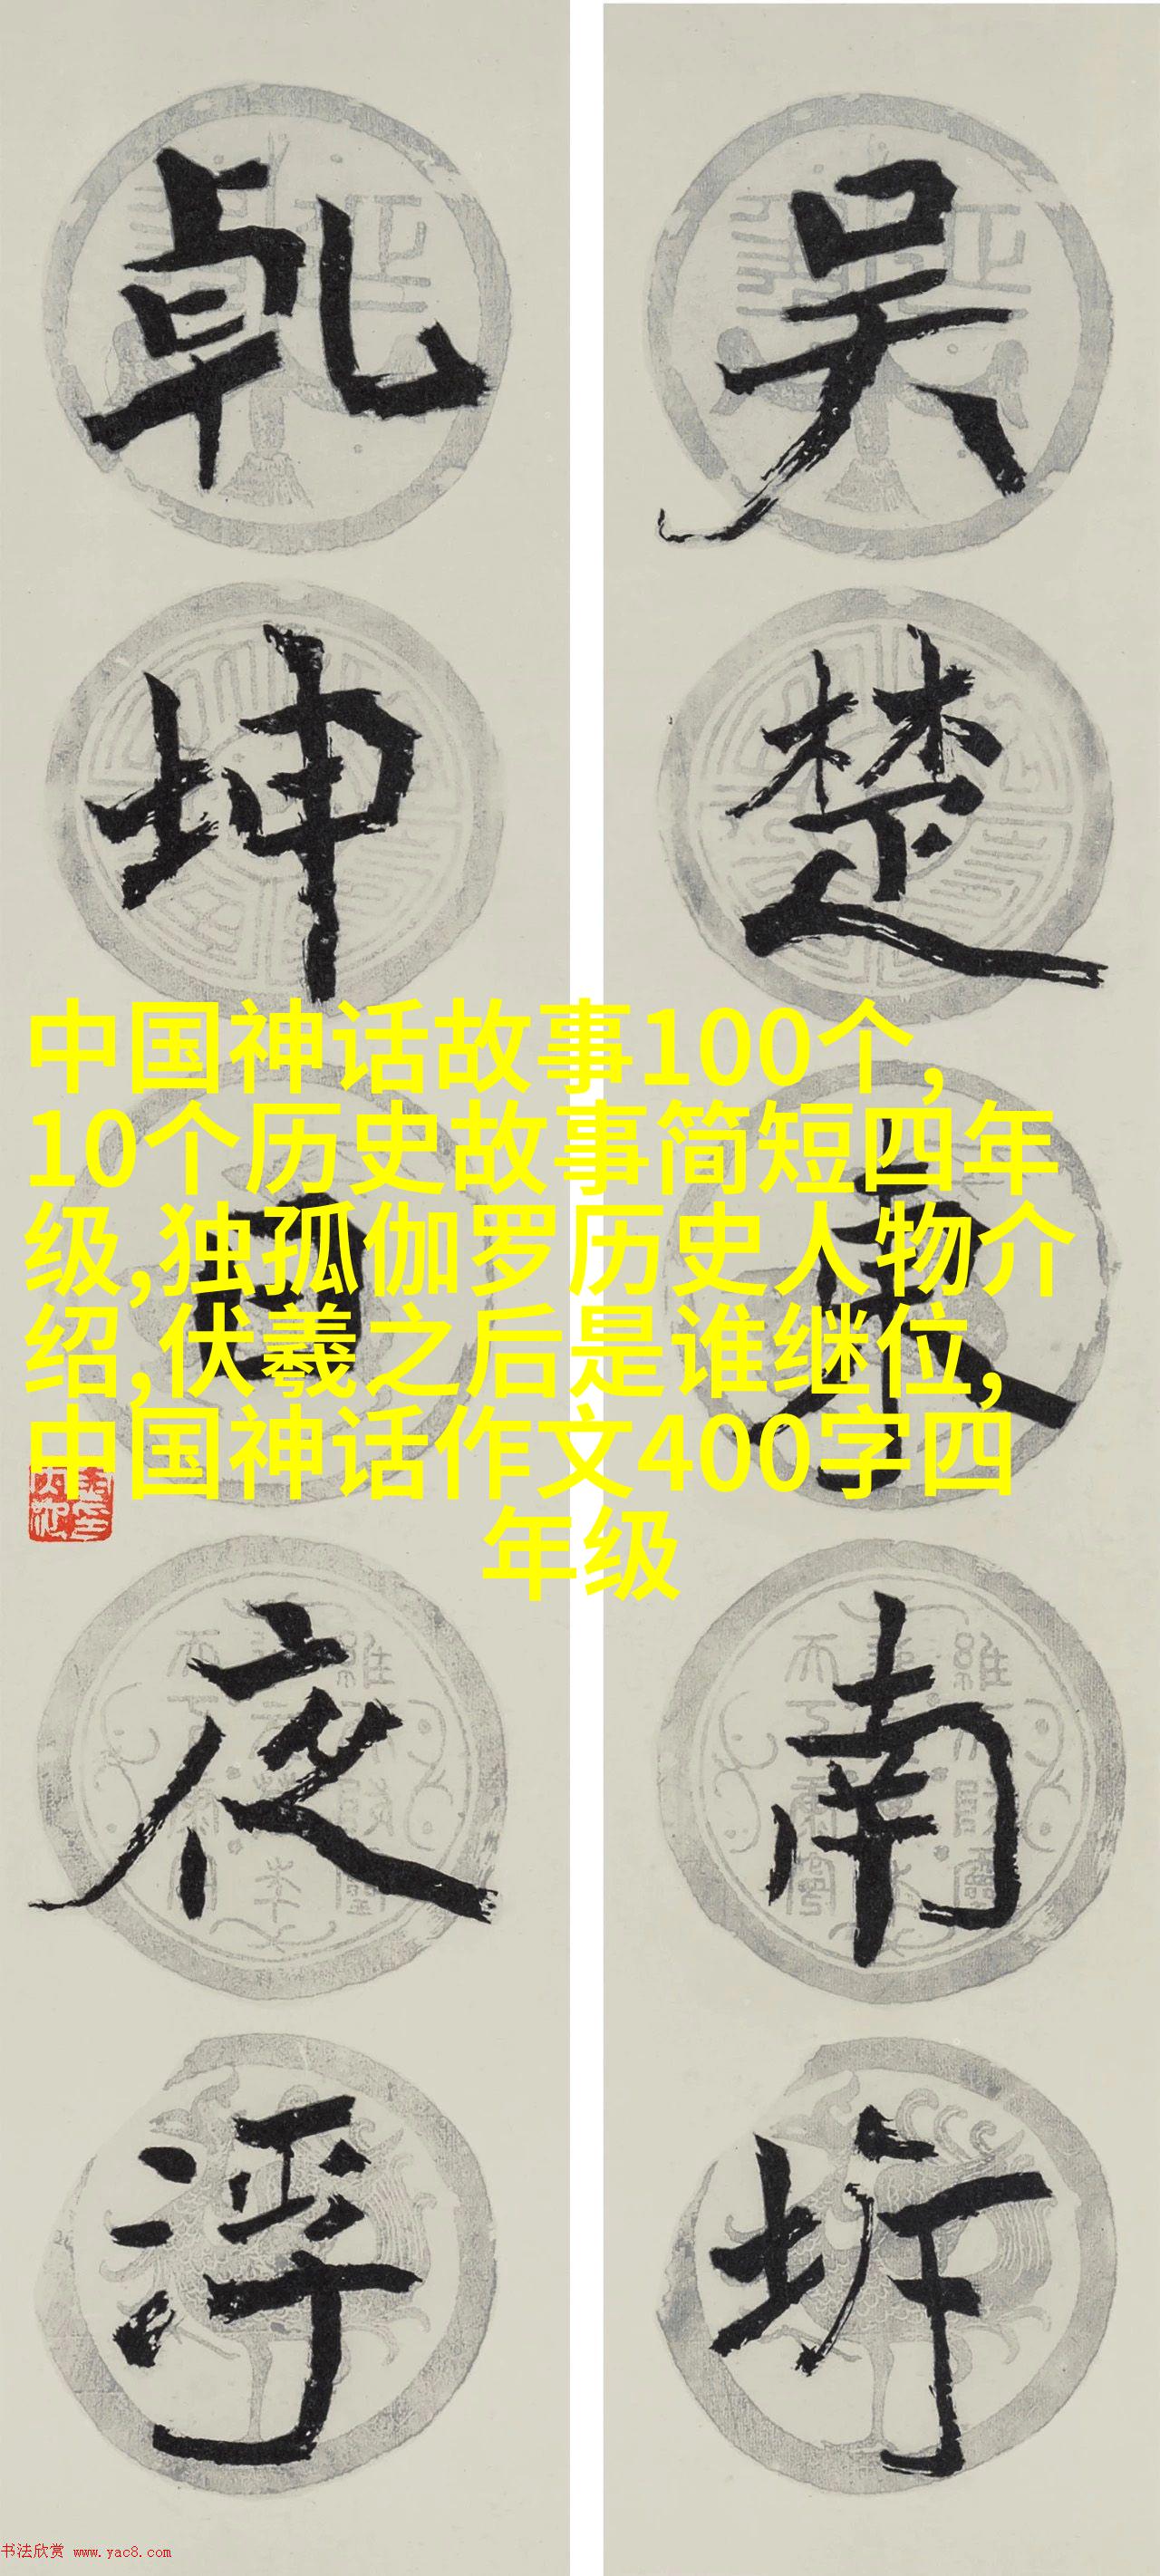 吴楚東南坼
乾坤日夜浮
中国神话故事100个,
10个历史故事简短四年
级,独孤伽罗历史人物介
绍,伏羲之后是谁继位,
中国神话作文400字四
年级
书法欣赏 www.yac8.com